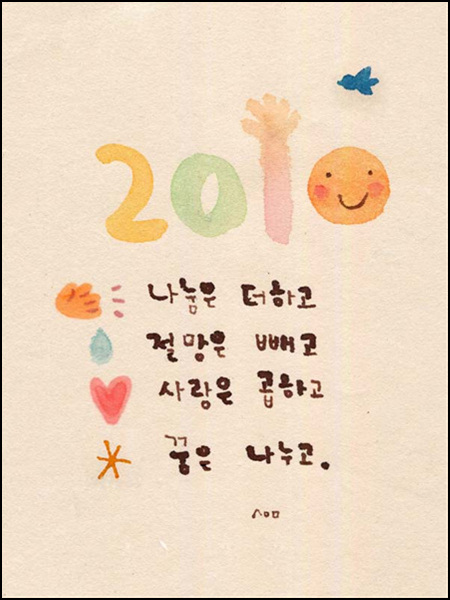 2010
나눔은 더하고
절망은 빼고
사랑은 곱하고
꿈은 나누고.